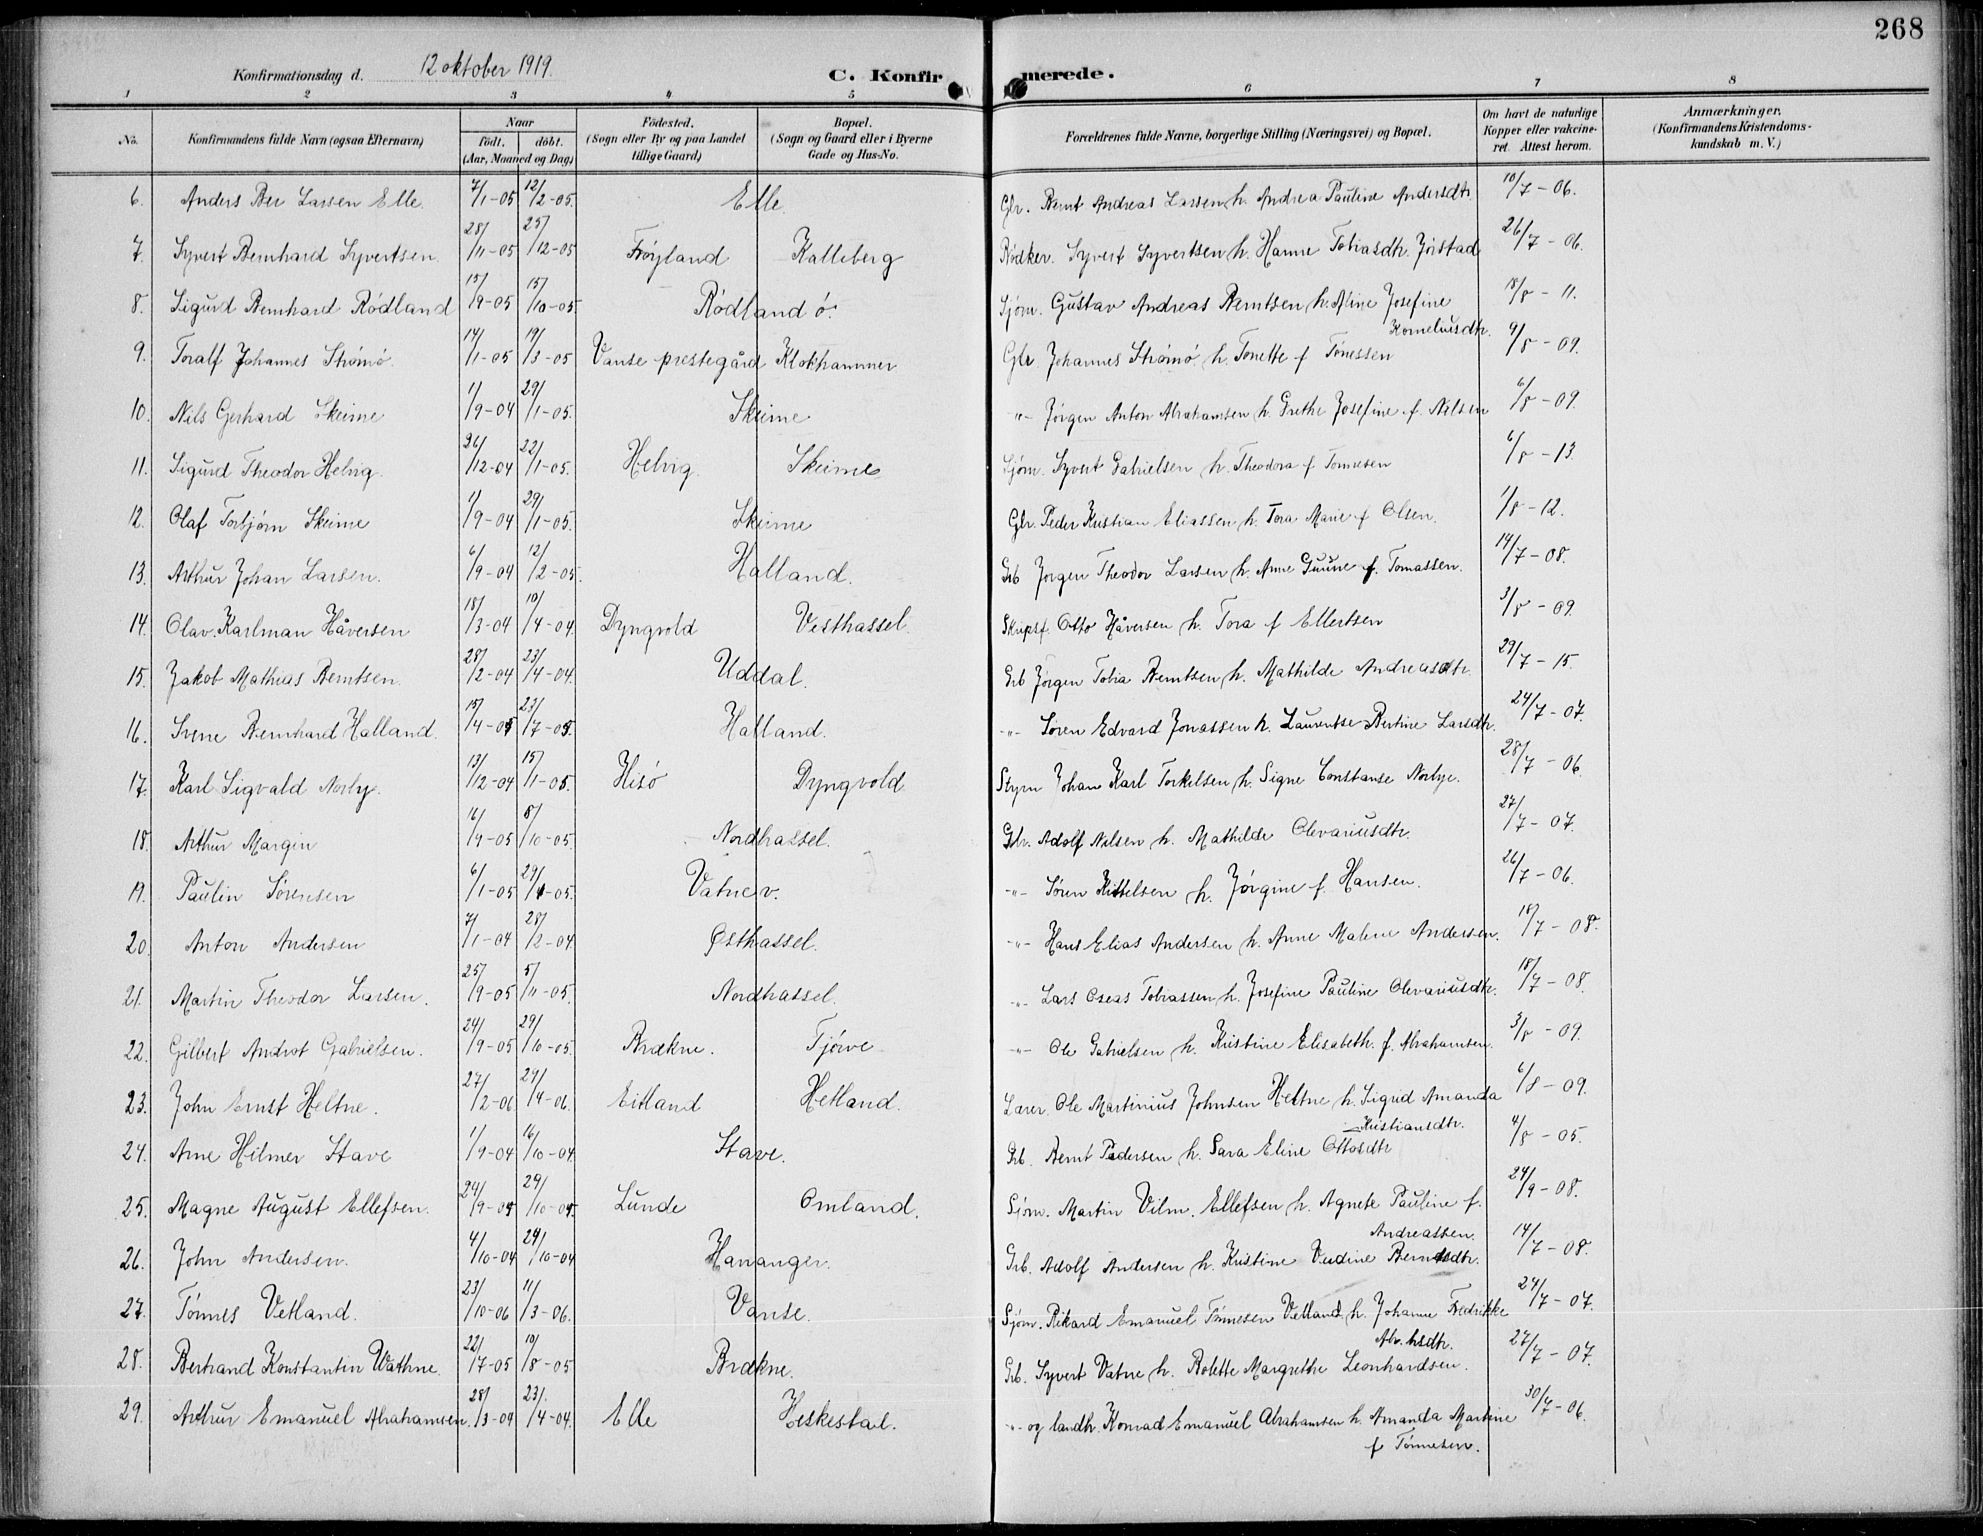 268
Konfirmationsdag d. 12 oktober 1919.
C. Konfirmerede.
1 2 3 4 5 6 7 8
No. Konfirmandens fulde Navn (ogsaa Efternavn) Naar født. døbt. (Aar, Maaned og Dag) Fødested. (Sogn eller By og paa Landet tillige Gaard) Bopæl. (Sogn og Gaard eller i Byerne Gade og Hus-No. Forældrenes fulde Navne, borgerlige Stilling (Næringsvei) og Bopæl. Om havt de naturlige Kopper eller vakcineret. Attest herom. Anmærkninger. (Konfirmandens Kristendomskundskab m. V.)
6. Anders Ber Larsen Elle. 7/1-05 12/2-05. Elle. Gbr. Bernt Andreas Larsen h. Andrea Pauline Andersdtr. 10/7-06.
7. Syvert Bernhard Syvertsen. 28/11-05 25/12-05 Frøyland Kalleberg Rødker. Syvert Syvertsen h. Hanne Tobiasdtr. Jøstad 26/7-06.
8. Sigurd Bernhard Rødland 15/9-05 15/10-05. Rødland ø. Sjøm. Gustav Andreas Berntsen h. Aline Josefine 18/8-11.
Korneliusdtr.
9. Toralf Johannes Strømø. 14/1-05 19/3-05 Vanse prestegård Klokhammer Gbr Johannes Strømø h. Tonette f Tønessen 9/8-09.
10. Nils Gerhard Skeime 1/9-04 29/1-05. Skeime -"- Jørgen Anton Abrahamsen h. Grethe Josefine f. Nilsen 6/8-09.
11. Sigurd Theodor Helvig. 26/12-04 22/1-05. Helvig. Skeime Sjøm. Syvert Gabrielsen h. Theodora f Tønnesen 6/8-13.
12. Olaf Torbjørn Skeime 1/9-04 29/1-05. Skeime Gbr. Peder Kristian Eliassen h. Tora Marie f Olsen. 1/8-12.
13. Arthur Johan Larsen. 6/9-04 12/2-05. Halland. Grb Jørgen Theodor Larsen h. Anne Guune f. Tomassen. 14/7-08.
14. Olav Karlman Håversen 18/3-04 10/4-04. Dyngvold Vesthassel. Skipsf. Otto Håversen h. Tora f Ellertsen 3/8-09
15. Jakob Mathias Berntsen. 28/2-04 23/4-04. Uddal. Grb Jørgen Tobia Berntsen h. Mathilde Andreasdtr. 29/7-15.
16. Irene Bernhard Halland. 15/4-05 23/7-05. Halland. -"- Søren Edvard Jonassen h. Laurentse Bertine Larsdtr. 24/7-07.
17. Karl Sigvald Norby. 13/12-04 15/1-05. Hisø Dyngvold Styrm Johan Karl Torkelsen h. Signe Constanse Norbye. 28/7-06.
18. Arthur Margin 16/9-05 8/10-05. Nordhassel. Gbr. Adolf Nilsen h. Mathilde Olevariusdtr. 27/7-07.
19. Paulin Sørensen 6/1-05 29/1-05. Vatne v. -"- Søren Kittelsen h. Jørgine f. Hansen. 26/7-06.
20. Anton Andersen 7/1-04 28/2-04. Østhassel. -"- Hans Elias Andersen h. Anne Malene Andersen. 18/7-08.
21. Martin Theodor Larsen. 25/9-05 5/11-05. Nordhassel. -"- Lars Oseas Tobiassen h. Josefine Pauline Olevariusdtr. 18/7-08.
22. Gilbert Androt Gabrielsen. 24/9-05 29/10-05. Brækne. Tjørve -"- Ole Gabrielsen h. Kristine Elisabeth. f. Abrahamsen. 3/8-09.
23. John Ernst Heltne. 27/2-06 29/4-06. Eitland Hetland. Lærer. Ole Martinius Johnsen Heltne h. Sigrid Amanda 6/8-09.
Kristiansdtr.
24. Arne Hilmer Stave 1/9-04 16/10-04. Stave. Grb. Bernt Pedersen h. Sara Eline Ottosdtr 4/8-05.
25. Magne August Ellefsen. 24/9-04 29/10-04. Lunde Omland. Sjøm. Martin Vilm. Ellefsen h. Agnete Pauline f. 24/9-08.
Andreassen.
26. John Andersen. 4/10-04 29/10-04 Hananger. Grb. Adolf Andersen h. Kristine Berntsdtr. 14/7-08.
27. Tønnes Vetland. 23/10-06 11/3-06. Vanse. Sjøm. Rikard Emanuel Tønnesen Vetland h. Johanne Fredrikke 24/7-07.
Abr. hsdtr.
28. Bertrand Konstantin Wathne. 22/7-05 10/8-05. Brækne. Grb. Syvert Vatne h. Bolette Margrethe Leonhardsen. 27/7-07.
29. Arthur Emanuel Abrahamsen. 28/3-04 23/4-04. Elle Heskestad. -"- og landh. Konrad Emanuel Abrahamsen h. Amanda Martine 30/7-06.
f Tønnesen.